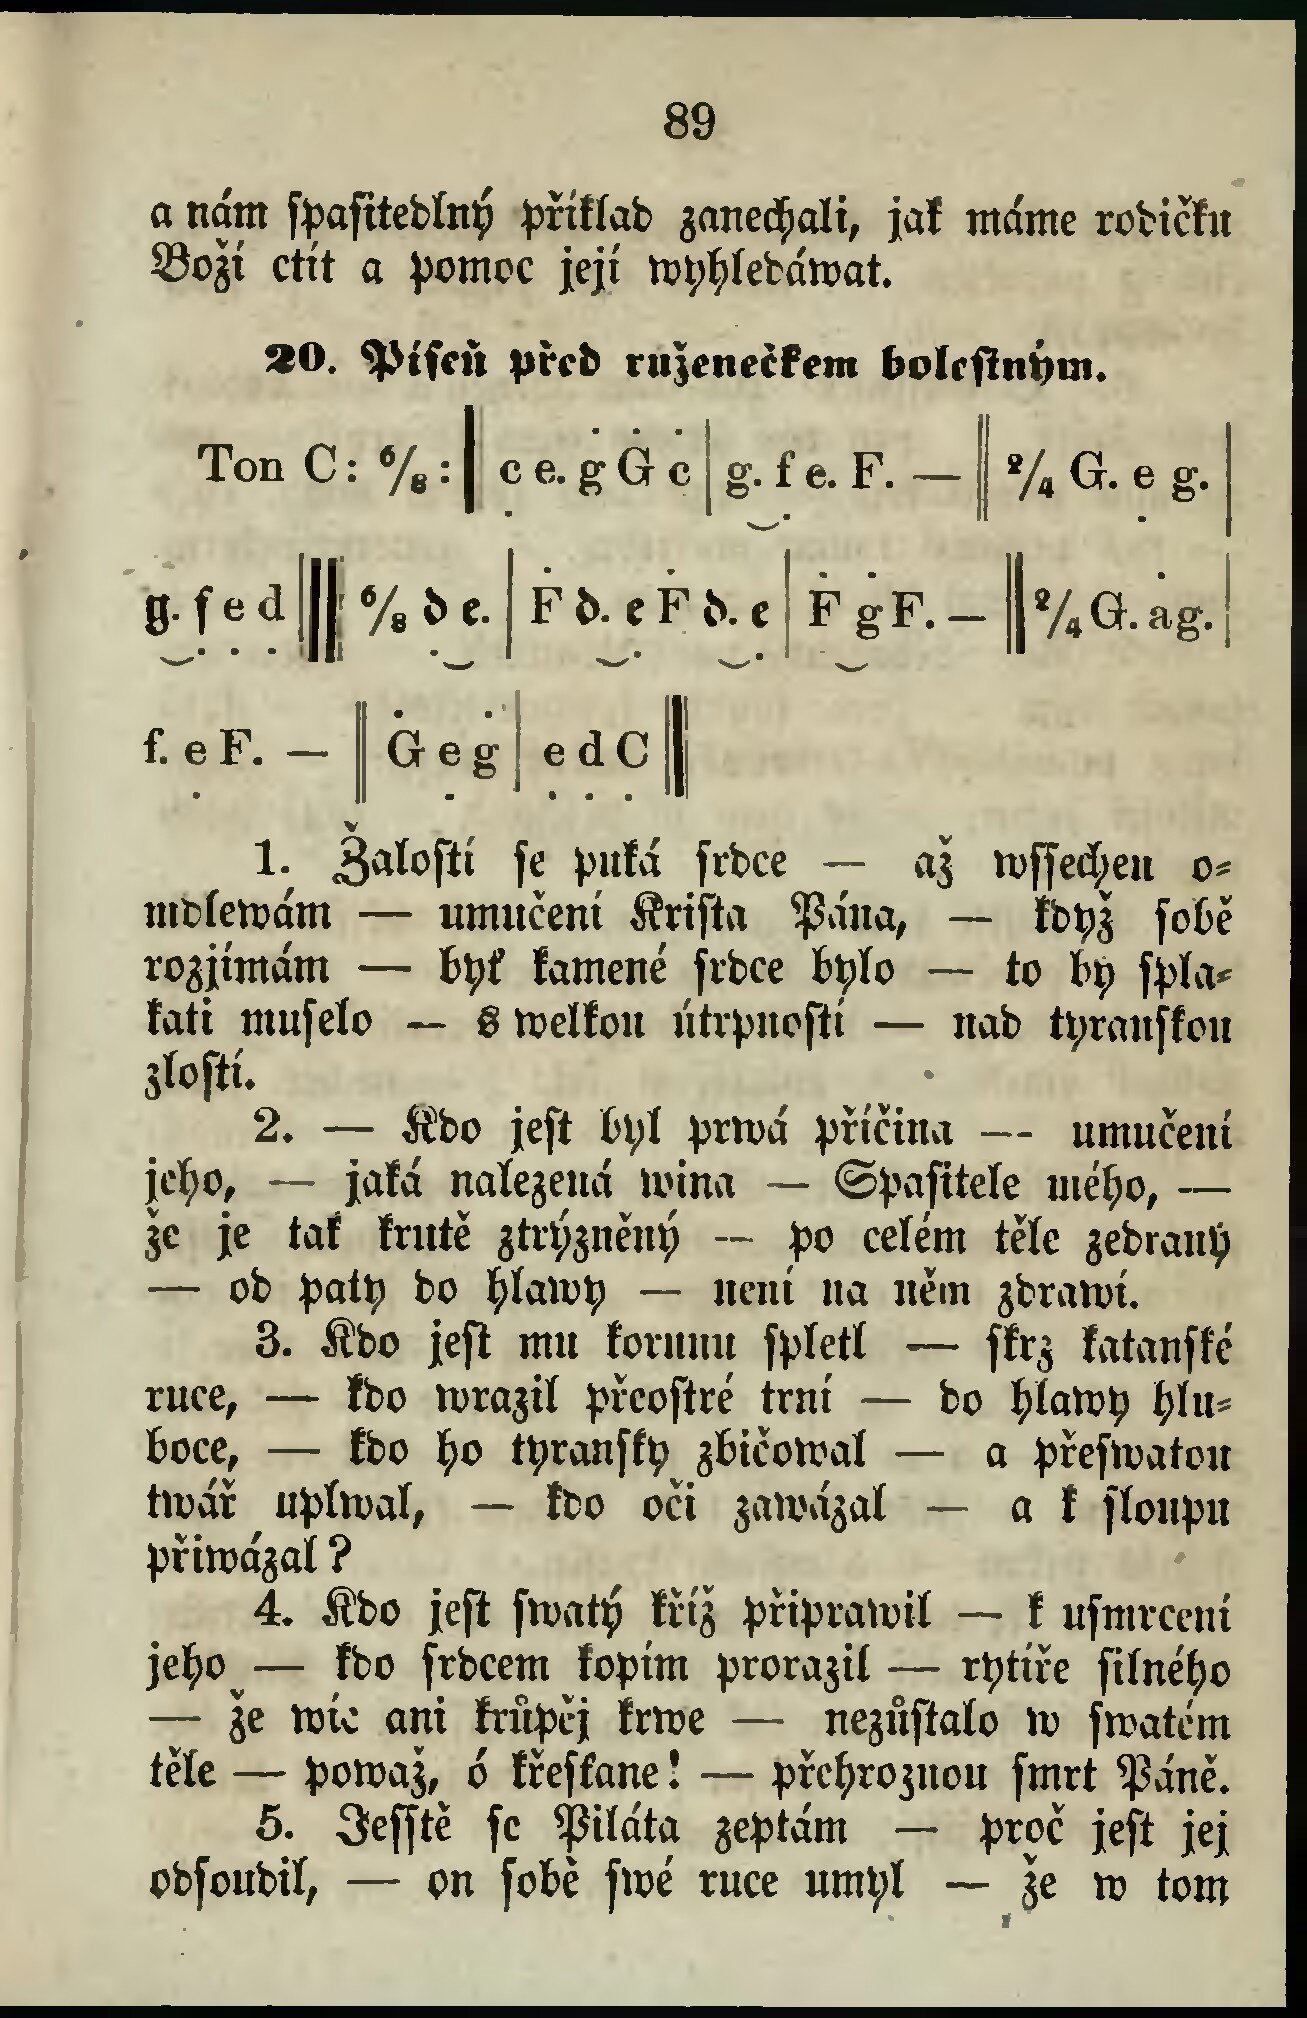 89
a nám spasitedlný příklad zanechali, jak máme rodičku
Boží ctít a pomoc její wyhledáwat.
20. Píseň před růženečkem bolestným.
Ton C: 6/8: || c e. g Ġ ċ | g. f e. F. — || 2/4 G. e g. |
g. f e d |||| 6/8 d e. | Ḟ d. e Ḟ d. e | Ḟ ġ F. — || 2/4 G. ȧ g. |
f. e F. — || Ġ e ġ | e d C |||
1. Žalostí se puká srdce — až wssechen o-
mdlewám — umučení Krista Pána, — když sobě
rozjímám — byť kamené srdce bylo — to by spla-
kati muselo — s welkou útrpností — nad tyranskou
zlostí.
2. — Kdo jest byl prwá příčina — umučení
jeho, — jaká nalezená wina — Spasitele mého, —
že je tak krutě ztrýzněný — po celém těle zedraný
— od paty do hlawy — není na něm zdrawí.
3. Kdo jest mu korunu spletl — skrz katanské
ruce, — kdo wrazil přeostré trní — do hlawy hlu-
boce, — kdo ho tyransky zbičowal — a přeswatou
twář uplwal, — kdo oči zawázal — a k sloupu
přiwázal?
4. Kdo jest swatý kříž připrawil — k usmrcení
jeho — kdo srdcem kopím prorazil — rytíře silného
— že wíc ani krůpěj krwe — nezůstalo w swatém
těle — powaž, ó křesťane! — přehroznou smrt Páně.
5. Jesstě se Piláta zeptám — proč jest jej
odsoudil, — on sobě swé ruce umyl — že w tom